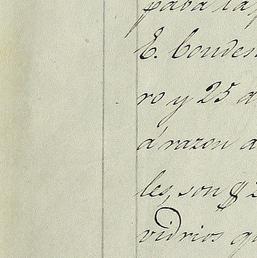 para la
E. Conden
ro y 25 a
á razon d
les, son $
vidrios q